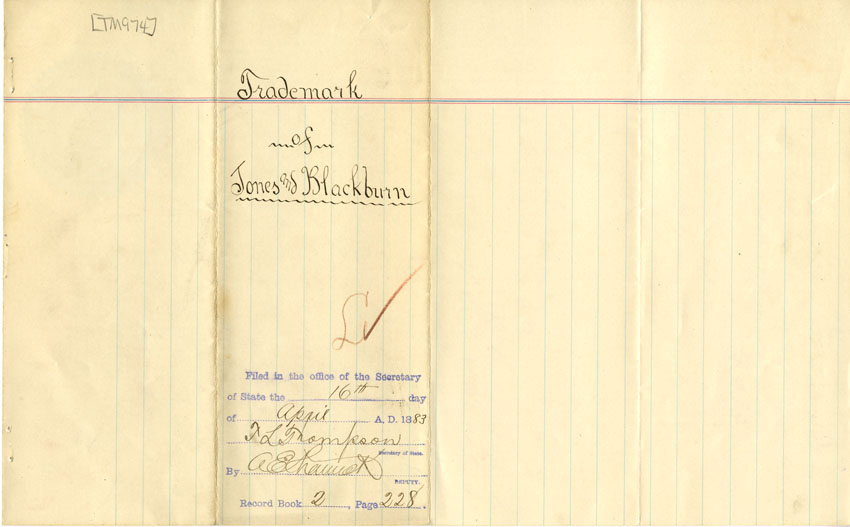 [TM974]
Trademark
of
Jones and Blackburn
L
Filed in the office of the Secretary
of State the 16th day
of April A. D. 1883
T L Thompson
Secretary of State.
By A E
DEPUTY.
Record Book 2, Page 228.